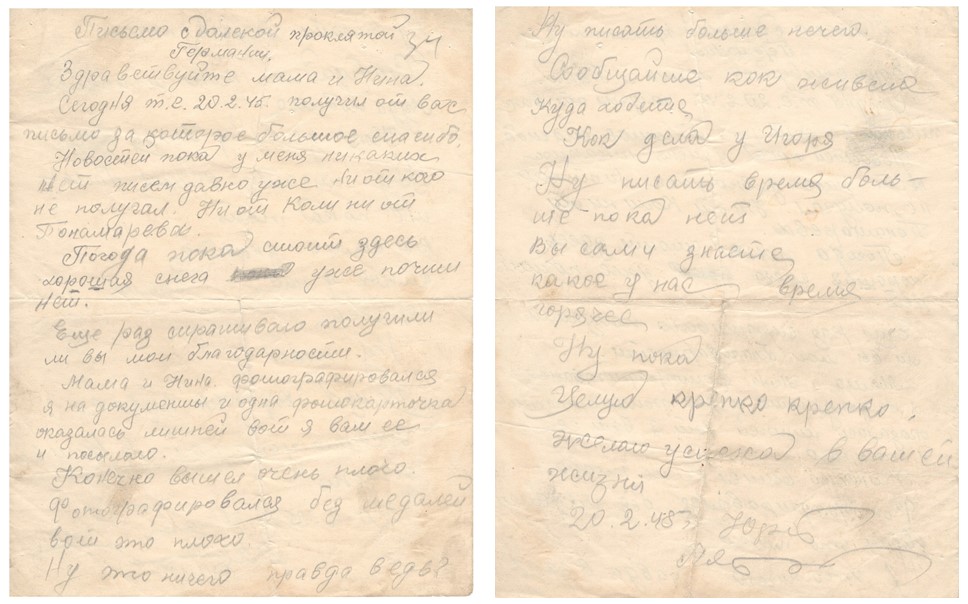 Письмо с далекой проклятой
Германии.
34
Здравствуйте мама и Нина.
Сегодня т.е. 20.2.45. получил от вас
письмо за которое большое спасибо.
Новостей пока у меня никаких
нет писем давно уже ни от кого
не получал. Ни от Коли ни от
Понамарева.
Погода пока стоит здесь
хорошая снега уже почти
нет.
Еще раз спрашиваю получили
ли вы мои благодарности.
Мама и Нина. фотографировался
я на документы и одна фотокарточка
оказалась лишней вот я вам ее
и посылаю.
Конечно вышел очень плохо.
Фотографировался без медалей
вот это плохо.
Ну это ничего правда ведь?
Ну писать больше нечего.
Сообщайте как живете
куда ходите
Как дела у Игоря
Ну писать время боль-
ше пока нет
Вы сами знаете
какое у нас время
горячее
Ну пока
Целую крепко крепко.
желаю успеха в вашей
жизни
20.2.45 Юра